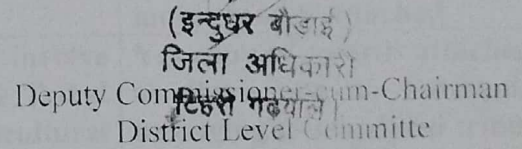 (इन्दुधर बौड़ाई)
जिला अधिकारी
Deputy Commissioner-cum-Chairman
टिहरी गढ़वाल।
District Level Committe